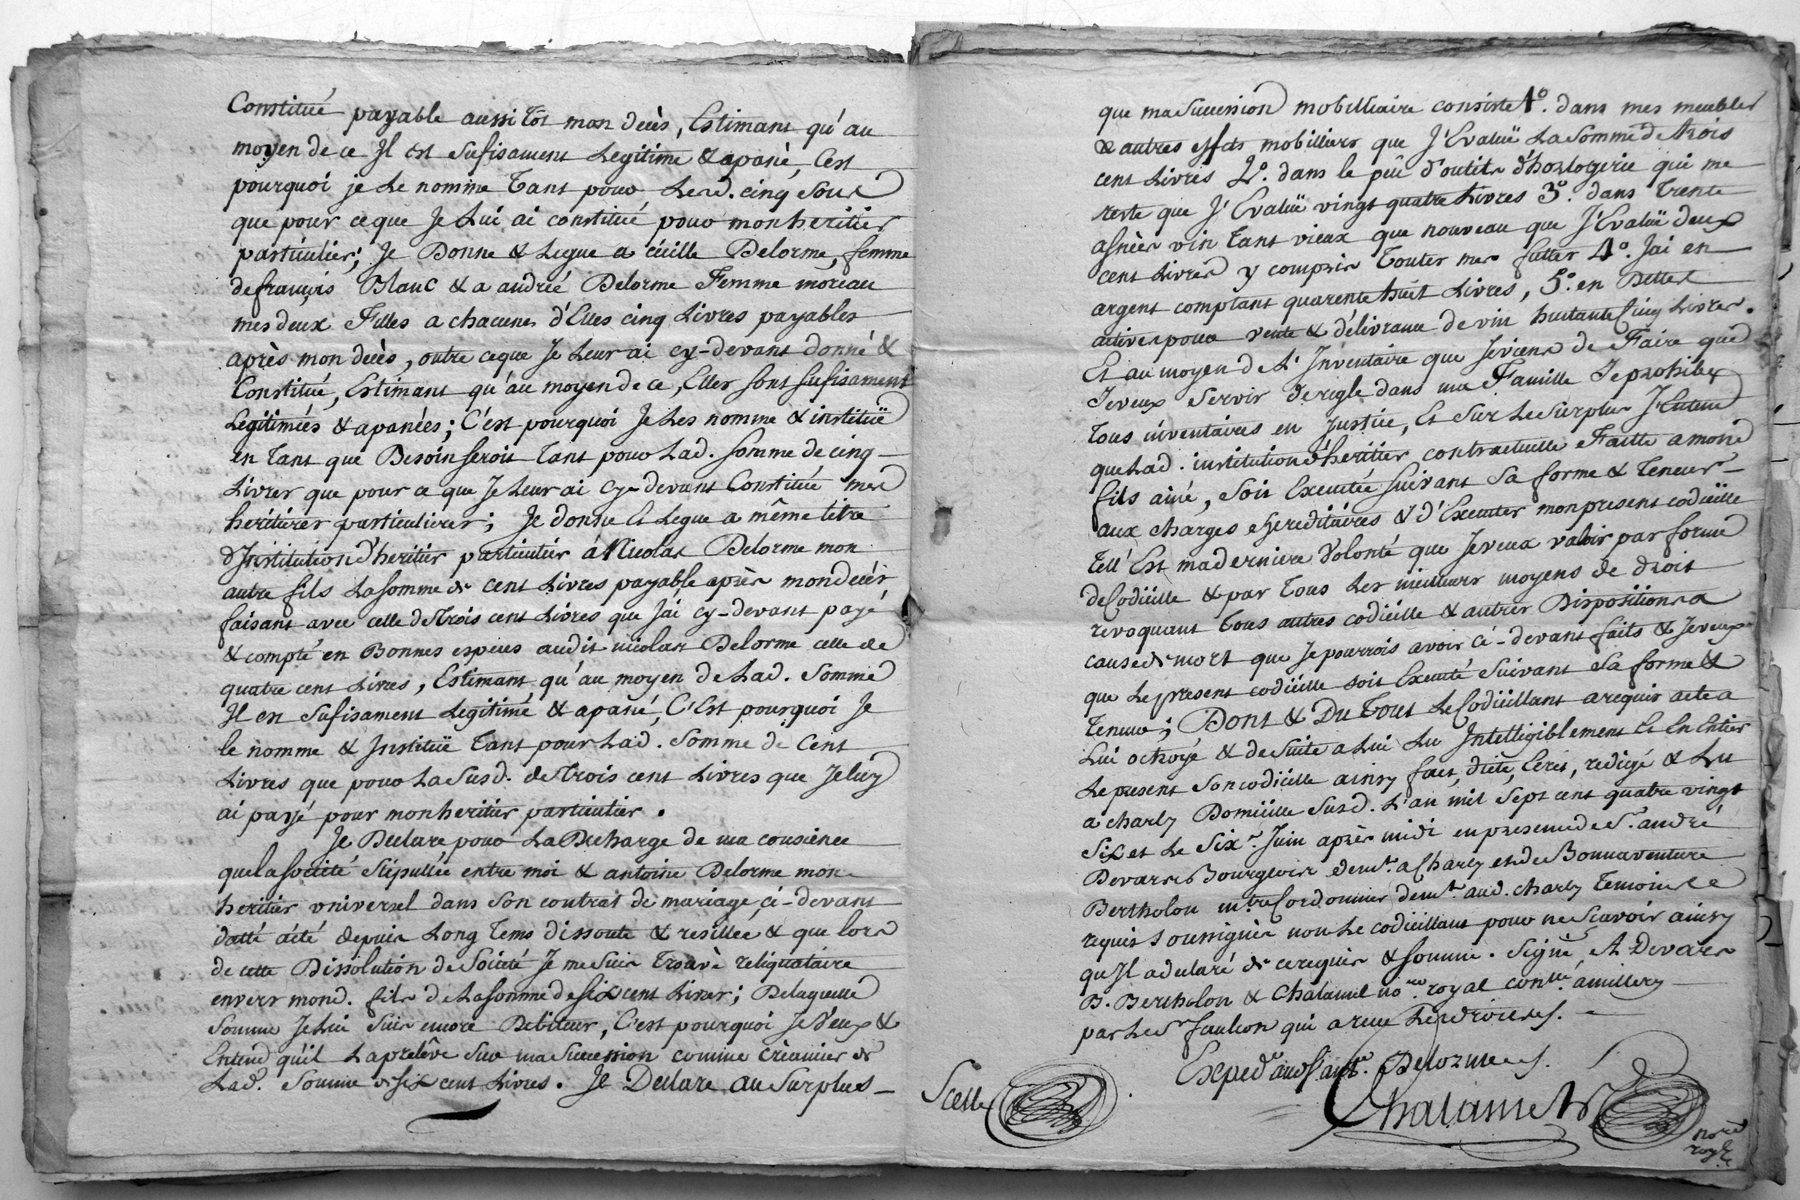 Constitué payable aussi tôt mon decès, Estimant qu'au
moyen de ce Il est sufisament Legitimé & apané, C'est
pourquoi je Le nomme tant pour Lesd. cinq sous
que pour ce que Je Lui ai constitué pour mon heritier
particulier; Je Donne & Legue a Delorme, femme
de françois Blanc & a andrée Delorme Femme moreau
mes deux Filles a chacune d'Elles cinq Livres payables
après mon decès, outre ce que Je Leur ai cy-devant donné &
Constitué, Estimant qu'au moyen de ce, Elles sont sufisament
Legitimées & apanées; C'est pourquoi Je Les nomme & instituë
en tant que Besoin seroit tant pour Lad. somme de cinq
Livres que pour ce que Je Leur ai cy-devant Constitué mes
heritieres particulieres; Je donne et Legue a même titre
d'Institution d'heritier particulier à Nicolas Delorme mon
autre fils La somme de cent Livres payable après mon decès
faisant avec celle de trois cent Livres que J'ai cy-devant payé
& compté en Bonnes especes audit nicolas Delorme celle de
quatre cent Livres, Estimant qu'au moyen de Lad. Somme
Il en sufisament Legitimé & apané, C'Est pourquoi Je
le nomme & Instituë tant pour Lad. somme de Cent
Livres que pour La susd. de trois cent Livres que Je luy
ai payé pour mon heritier particulier.
Je Declare pour La Decharge de ma consience
que la societé stipullée entre moi & antoine Delorme mon
heritier universel dans son contrat de mariage ci-devant
datté a été depuis Long tems dissoute & resillée & que lors
de cette Dissolution de Societé Je me suis trouvé reliquataire
envers mond. fils de La somme de six cent Livres; De laquelle
somme Je Lui suis encore Debiteur, C'est pourquoi Je Veux &
Entend qu'il La preléve sur ma Succession comme créancier de
Lad. Somme de six cent Livres. Je Declare au Surplus
que ma succession mobilliaire consiste 1°. dans mes meubles
& autres effets mobilliers que J'Evaluë La somme de trois
cent Livres 2°. dans le peu d'outils d'horlogerie qui me
reste que J'Evaluë vingt quatre Livres 3°. dans trente
asnées vin tant vieux que nouveau que J'Evaluë deux
cent Livres y compris toutes mes futtes 4°. J'ai en
argent comptant quarente huit Livres, 5°. en Dettes
actives pour vente & délivrance de vin huitante Cinq Livres.
Et au moyen de L'Inventaire que Je viens de Faire que
Je veux Servir de regle dans ma Famille Je prohibe
tous inventaires en Justice, Et Sur Le surplus J'Entend
que Lad. institution d'heritier contractuelle Faitte a mond
fils ainé, soit Executée suivant sa forme & teneur
aux charges hereditaires & d'Executer mon present codicille
tell' Est ma derniere Volonté que Je veux valoir par forme
de Codicille & par tous Les meilleurs moyens de droit
revoquant tous autres codicille & autres Dispositions a
cause de mort que Je pourrois avoir ci-devant faits & Je veux
que Le present codicille soit Executé suivant sa forme &
teneur; Dont & Du Tout Le Codicillant a requis acte a
Lui octroyé & de suite a Lui Lu Intelligiblement Et En Entier
Le present son codicille ainsy fait, dicté, Ecrit, redigé & Lu
a charly Domicille susd. L'an mil sept cent quatre vingt
six et Le six.e Juin après midi en presence de S.r andré
Devars Bourgeois dem.t a Charly et de Bonnaventure
Bertholon m.tre Cordonnier dem.t aud. charly temoins
requis soussignés non Le codicillant pour ne scavoir ainsy
qu'Il a declaré de ce requis & sommé. Signé, A Devars
B. Bertholon & Chalamel no.re royal con.lé a millery
par Le S.r faulcon qui a reçu Les droits.
Exped.é aud. ant.e Delorme
Scellé
Chalamel
no.re
royal